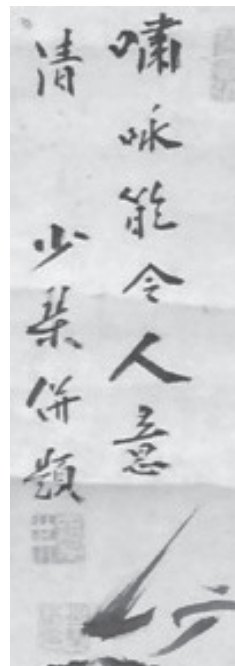 嘯咏能令人意
清 少琹併題